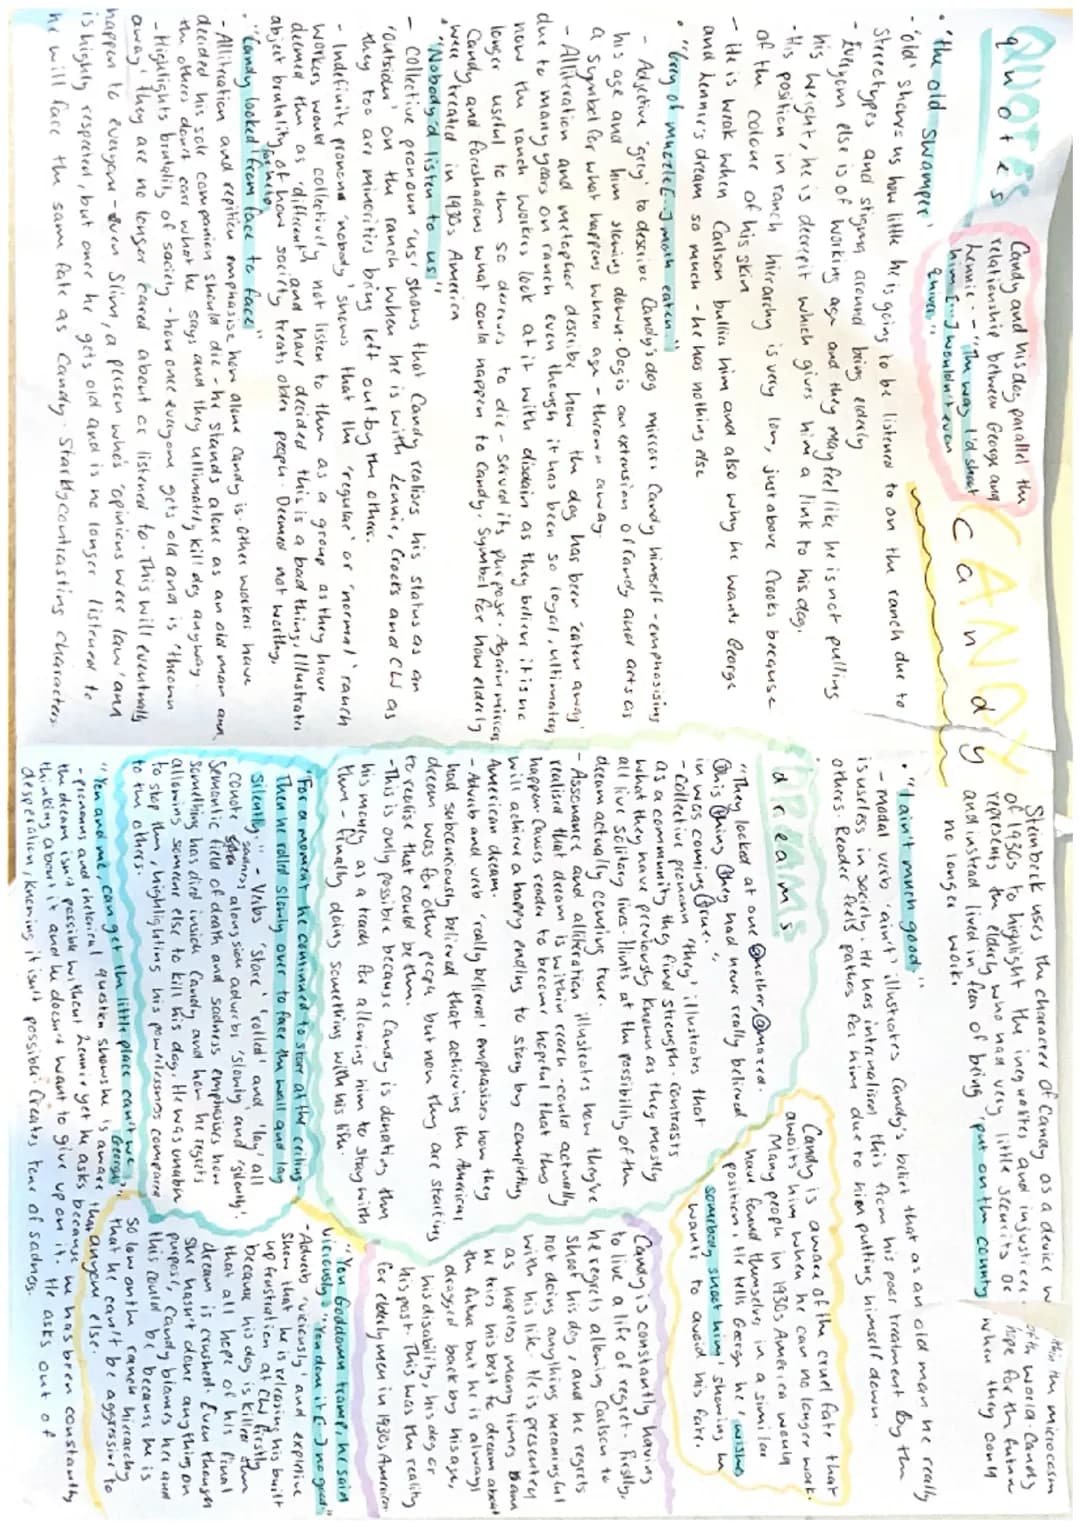 QUOTES
quotes
CANDY
Candy
Candy and his dog parallel the
relationship between George and
Lennie - "The way I'd shoot
him [...] wouldn't even
quiver."
• "the old swamper"
- 'old' shows us how little he is going to be listened to on the ranch due to
Stereotypes and stigma around being elderly
- Everyone else is of working age and they may feel like he is not pulling
his weight, he is decrepit which gives him a link to his dog.
- His position in ranch hierarchy is very low, just above Crooks because
of the colour of his skin
- He is weak when Carlson bullies him and also why he wants George
and Lennie's dream so much - he has nothing else
• "Grey of muzzle [...] moth eaten"
- Adjective 'grey' to describe Candy's dog mirrors Candy himself - emphasising
his age and him slowing down. Dog is an extension of Candy and acts as
a symbol for what happens when age - thrown away.
- Alliteration and metaphor describe how the dog has been 'eaten away'
due to many years on ranch even though it has been so loyal, ultimately
now the ranch workers look at it with disdain as they believe it is no
longer useful to them so deserves to die - served its purpose. Again mirrors
Candy and foreshadows what could happen to Candy. Symbol for how elderly
were treated in 1930s America
• "Nobody'd listen to us"
- Collective pronoun 'us' shows that Candy realises his status as an
'outsider' on the ranch when he is with Lennie, Crooks and CW as
they too are minorities being left out by the others.
- Indefinite pronoun 'nobody' shows that the 'regular' or 'normal' ranch
workers would collectively not listen to them as a group as they have
deemed them as 'different' and have decided this is a bad thing. Illustrates
abject brutality of how society treats older people. Deemed not worthy.
• "Candy looked from face to face"
- Alliteration and repitition emphasise how alone Candy is. Other workers have
decided his sole companion should die - he stands alone as an old man and
the others don't care what he says and they ultimately kill dog anyway
- Highlights brutality of society - how once everyone gets old and is 'thrown
away' they are no longer cared about or listened to. This will eventually
happen to everyone - even Slim, a person who's 'opinions were law' and
is highly respected, but once he gets old and is no longer listened to
he will face the same fate as Candy. Starkly contrasting characters.
Steinbeck uses the character of Candy as a device within the microcosm
of 1930s to highlight the inequalities and injustices of the world. Candy
represents the elderly who had very little security or hope for the future
and instead lived in fear of being 'put on the county' when they could
no longer work.
• "I ain't much good"
- modal verb 'ain't' illustrates Candy's belief that as an old man he really
is useless in society. He has internalised this from his poor treatment by the
others. Reader feels pathos for him due to him putting himself down.
DREAMS
dreams
Candy is aware of the cruel fate that
awaits him when he can no longer work.
Many people in 1930s America would
have found themselves in a similar
position. He tells George he 'wishes
somebody shoot him' showing he
wants to avoid his fate.
"They looked at one another, amazed.
This thing they had never really believed
in was coming true."
- Collective pronoun 'they' illustrates that
as a community they find strength - contrasts
what they have previously known as they mostly
all live solitary lives. Hints at the possibility of the
dream actually coming true.
- Assonance and alliteration illustrates how they've
realised that dream is within reach - could actually
happen. Causes reader to become hopeful that they
will achieve a happy ending to story by completing
American dream.
- Adverb and verb 'really believed' emphasises how they
had subconsciously believed that achieving the American
dream was for other people but now they are starting
to realise that could be them.
- This is only possible because Candy is donating them
his money as a trade for allowing him to stay with
them - finally doing something with his life.
Candy is constantly having
to live a life of regret. Firstly,
he regrets allowing Carlson to
shoot his dog, and he regrets
not doing anything meaningful
with his life. He is presented
as hopeless many times and
he tries his best to dream about
the future but he is always
dragged back by his age,
his disability, his dog or
his past. This was the reality
for elderly men in 1930s American.
"For a moment he continued to stare at the ceiling.
Then he rolled slowly over to face the wall and lay
silently" - Verbs 'stare' 'rolled' and 'lay' all
connote sadness alongside adverbs 'slowly' and 'silently'.
Semantic field of death and sadness emphasises how
something has died inside Candy and how he regrets
allowing someone else to kill his dog. He was unable
to stop them, highlighting his powerlessness compared
to the others.
"You Goddamn tramp, he said
viciously," "You done it [...] no good"
- Adverb 'viciously' and expletive
show that he is releasing his built
up frustration at CW firstly
because his dog is killed then
that all hope of his final
dream is crushed. Even though
she hasn't done anything on
purpose, Candy blames her and
this could be because he is
so low on the ranch hierarchy
that he can't be aggressive to
anyone else.
"You and me, can get the little place can't we,
George?"
- pronouns and rhetorical question shows he is aware that
the dream isn't possible without Lennie yet he asks because he has been constantly
thinking about it and he doesn't want to give up on it. He asks out of
desperation, knowing it isn't possible. Creates tone of sadness.